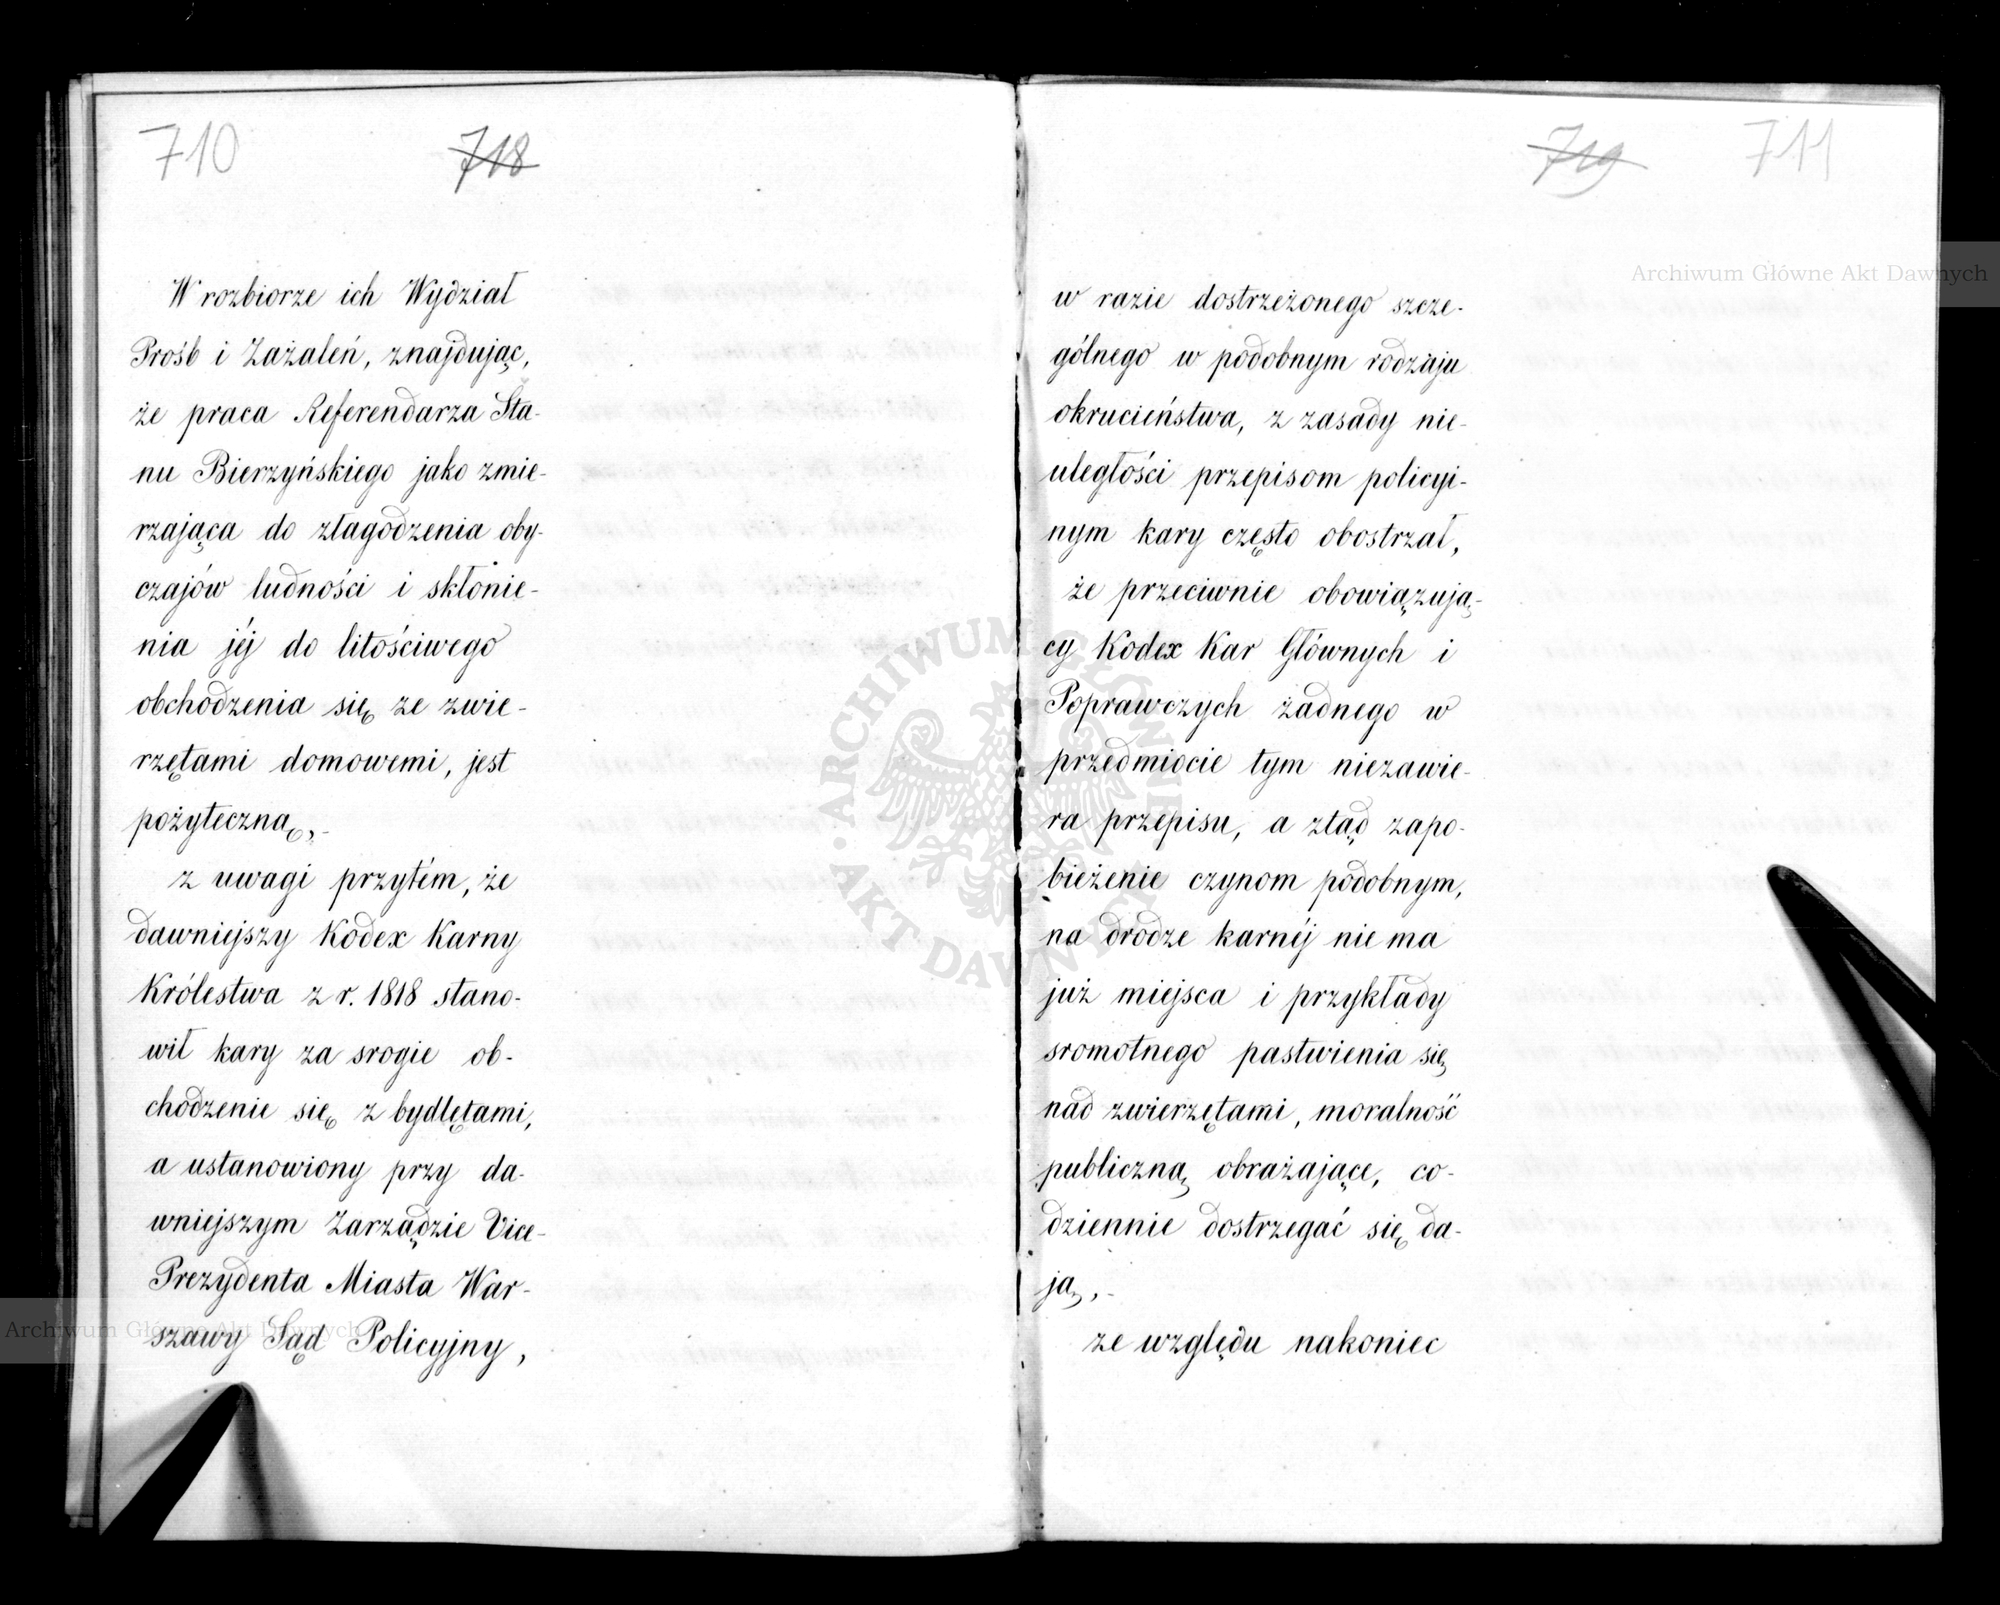 710 718
W rozbiorze ich Wydział
Prośb i Zażaleń, znajdując,
że praca Referendarza Sta-
nu Bierzyńskiego jako zmie-
rzająca do złagodzenia oby-
czajów ludności i skłonie-
nia jéj do litościwego
obchodzenia się ze zwie-
rzętami domowemi, jest
pożyteczną,-
z uwagi przytém, że
dawniejszy Kodex Karny
Królestwa z r. 1818 stano-
wił kary za srogie ob-
chodzenie się z bydlętami,
a ustanowiony przy da-
wniejszym Zarządzie Vice-
Prezydenta Miasta War-
szawy Sąd Policyjny,
719 711
w razie dostrzeżonego szcze-
gólnego w podobnym rodzaju
okrucieństwa, z zasady nie-
uległości przepisom policyi-
nym kary często obostrzał,
że przeciwnie obowiązują-
cy Kodex Kar Głównych i
Poprawczych żadnego w
przedmiocie tym niezawie-
ra przepisu, a ztąd zapo-
bieżenie czynom podobnym,
na drodze karnéj nie ma
już miejsca i przykłady
sromotnego pastwienia się
nad zwierzętami, moralność
publiczną obrażające, co-
dziennie dostrzegać się da-
ją,-
ze względu nakoniec
Archiwum Główne Akt Dawnych
Archiwum Główne Akt Dawnych
ARCHIWUM GŁÓWNE · AKT DAWNYCH ·